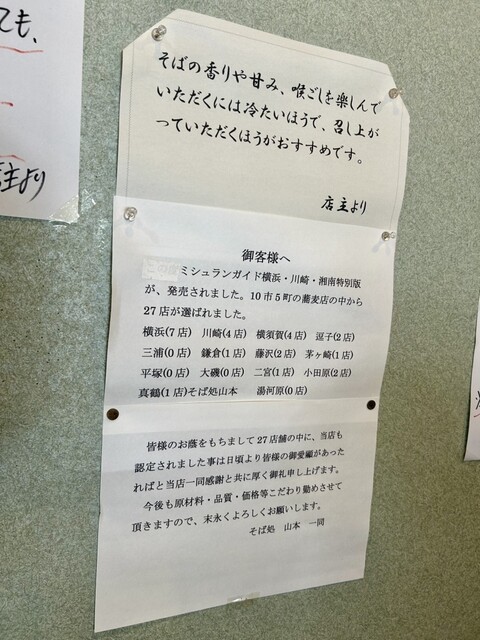 ても、
店主より
そばの香りや甘み、喉ごしを楽しんで
いただくには冷たいほうで、召し上が
っていただくほうがおすすめです。
店主より
御客様へ
ミシュランガイド横浜・川崎・湘南特別版
が、発売されました。10市5町の蕎麦店の中から
27店が選ばれました。
横浜(7店) 川崎(4店) 横須賀(4店) 逗子(2店)
三浦(0店) 鎌倉(1店) 藤沢(2店) 茅ヶ崎(1店)
平塚(0店) 大磯(0店) 二宮(1店) 小田原(2店)
真鶴(1店)そば処山本 湯河原(0店)
皆様のお蔭をもちまして27店舗の中に、当店も
認定されました事は日頃より皆様の御愛顧があった
ればと当店一同感謝と共に厚く御礼申し上げます。
今後も原材料・品質・価格等こだわり勤めさせて
頂きますので、末永くよろしくお願いします。
そば処 山本 一同